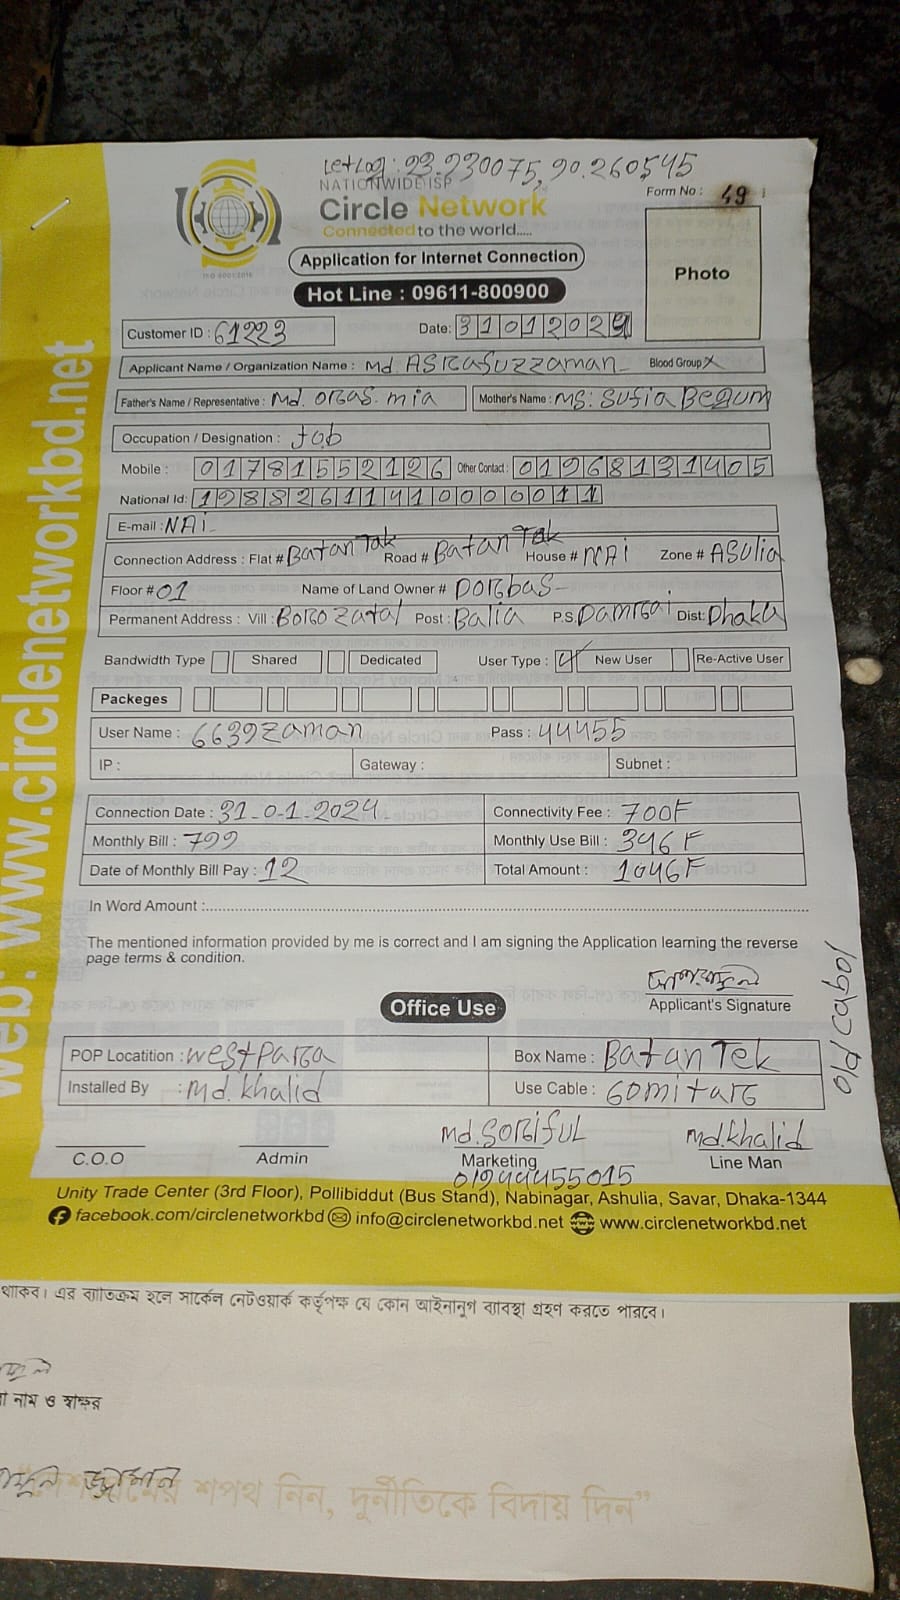 Let+Log: 23.230075, 90.260545
NATIONWIDE ISP
Circle Network
Connected to the world.....
ISO 9001:2015
Form No : 49
Photo
Application for Internet Connection
Hot Line : 09611-800900
Customer ID : 61223 Date: 31012024
Applicant Name / Organization Name : Md. ASRafuzzaman Blood Group X
Father's Name / Representative : Md. ORbas. mia Mother's Name : MS: Sufia Begum
Occupation / Designation : Job
Mobile : 01781552126 Other Contact : 01968131405
National Id: 19882611410000011
E-mail : NAi
Connection Address : Flat # Batan Tak Road # Batan Tak House # NAi Zone # ASulia
Floor # 01 Name of Land Owner # Dorbas
Permanent Address : Vill : Boro Zatal Post : Balia P.S. Damrai Dist: Dhaka
Bandwidth Type Shared Dedicated User Type : New User Re-Active User
Packeges
User Name : 6639zaman Pass : 44455
IP : Gateway : Subnet :
Connection Date : 31-01-2024 Connectivity Fee : 700F
Monthly Bill : 799 Monthly Use Bill : 346 F
Date of Monthly Bill Pay : 12 Total Amount : 1046F
In Word Amount :
The mentioned information provided by me is correct and I am signing the Application learning the reverse
page terms & condition.
Applicant's Signature
Office Use
old cabol
POP Locatition : westpara Box Name : Batan Tek
Installed By : Md. khalid Use Cable : 60mitarc
Md. SoRiFUL Md.khalid
C.O.O Admin Marketing Line Man
01944455015
Unity Trade Center (3rd Floor), Pollibiddut (Bus Stand), Nabinagar, Ashulia, Savar, Dhaka-1344
facebook.com/circlenetworkbd info@circlenetworkbd.net www.circlenetworkbd.net
web: www.circlenetworkbd.net
থাকব। এর ব্যতিক্রম হলে সার্কেল নেটওয়ার্ক কর্তৃপক্ষ যে কোন আইনানুগ ব্যবস্থা গ্রহণ করতে পারবে।
নাম ও স্বাক্ষর
জামান
শপথ নিন, দুর্নীতিকে বিদায় দিন”